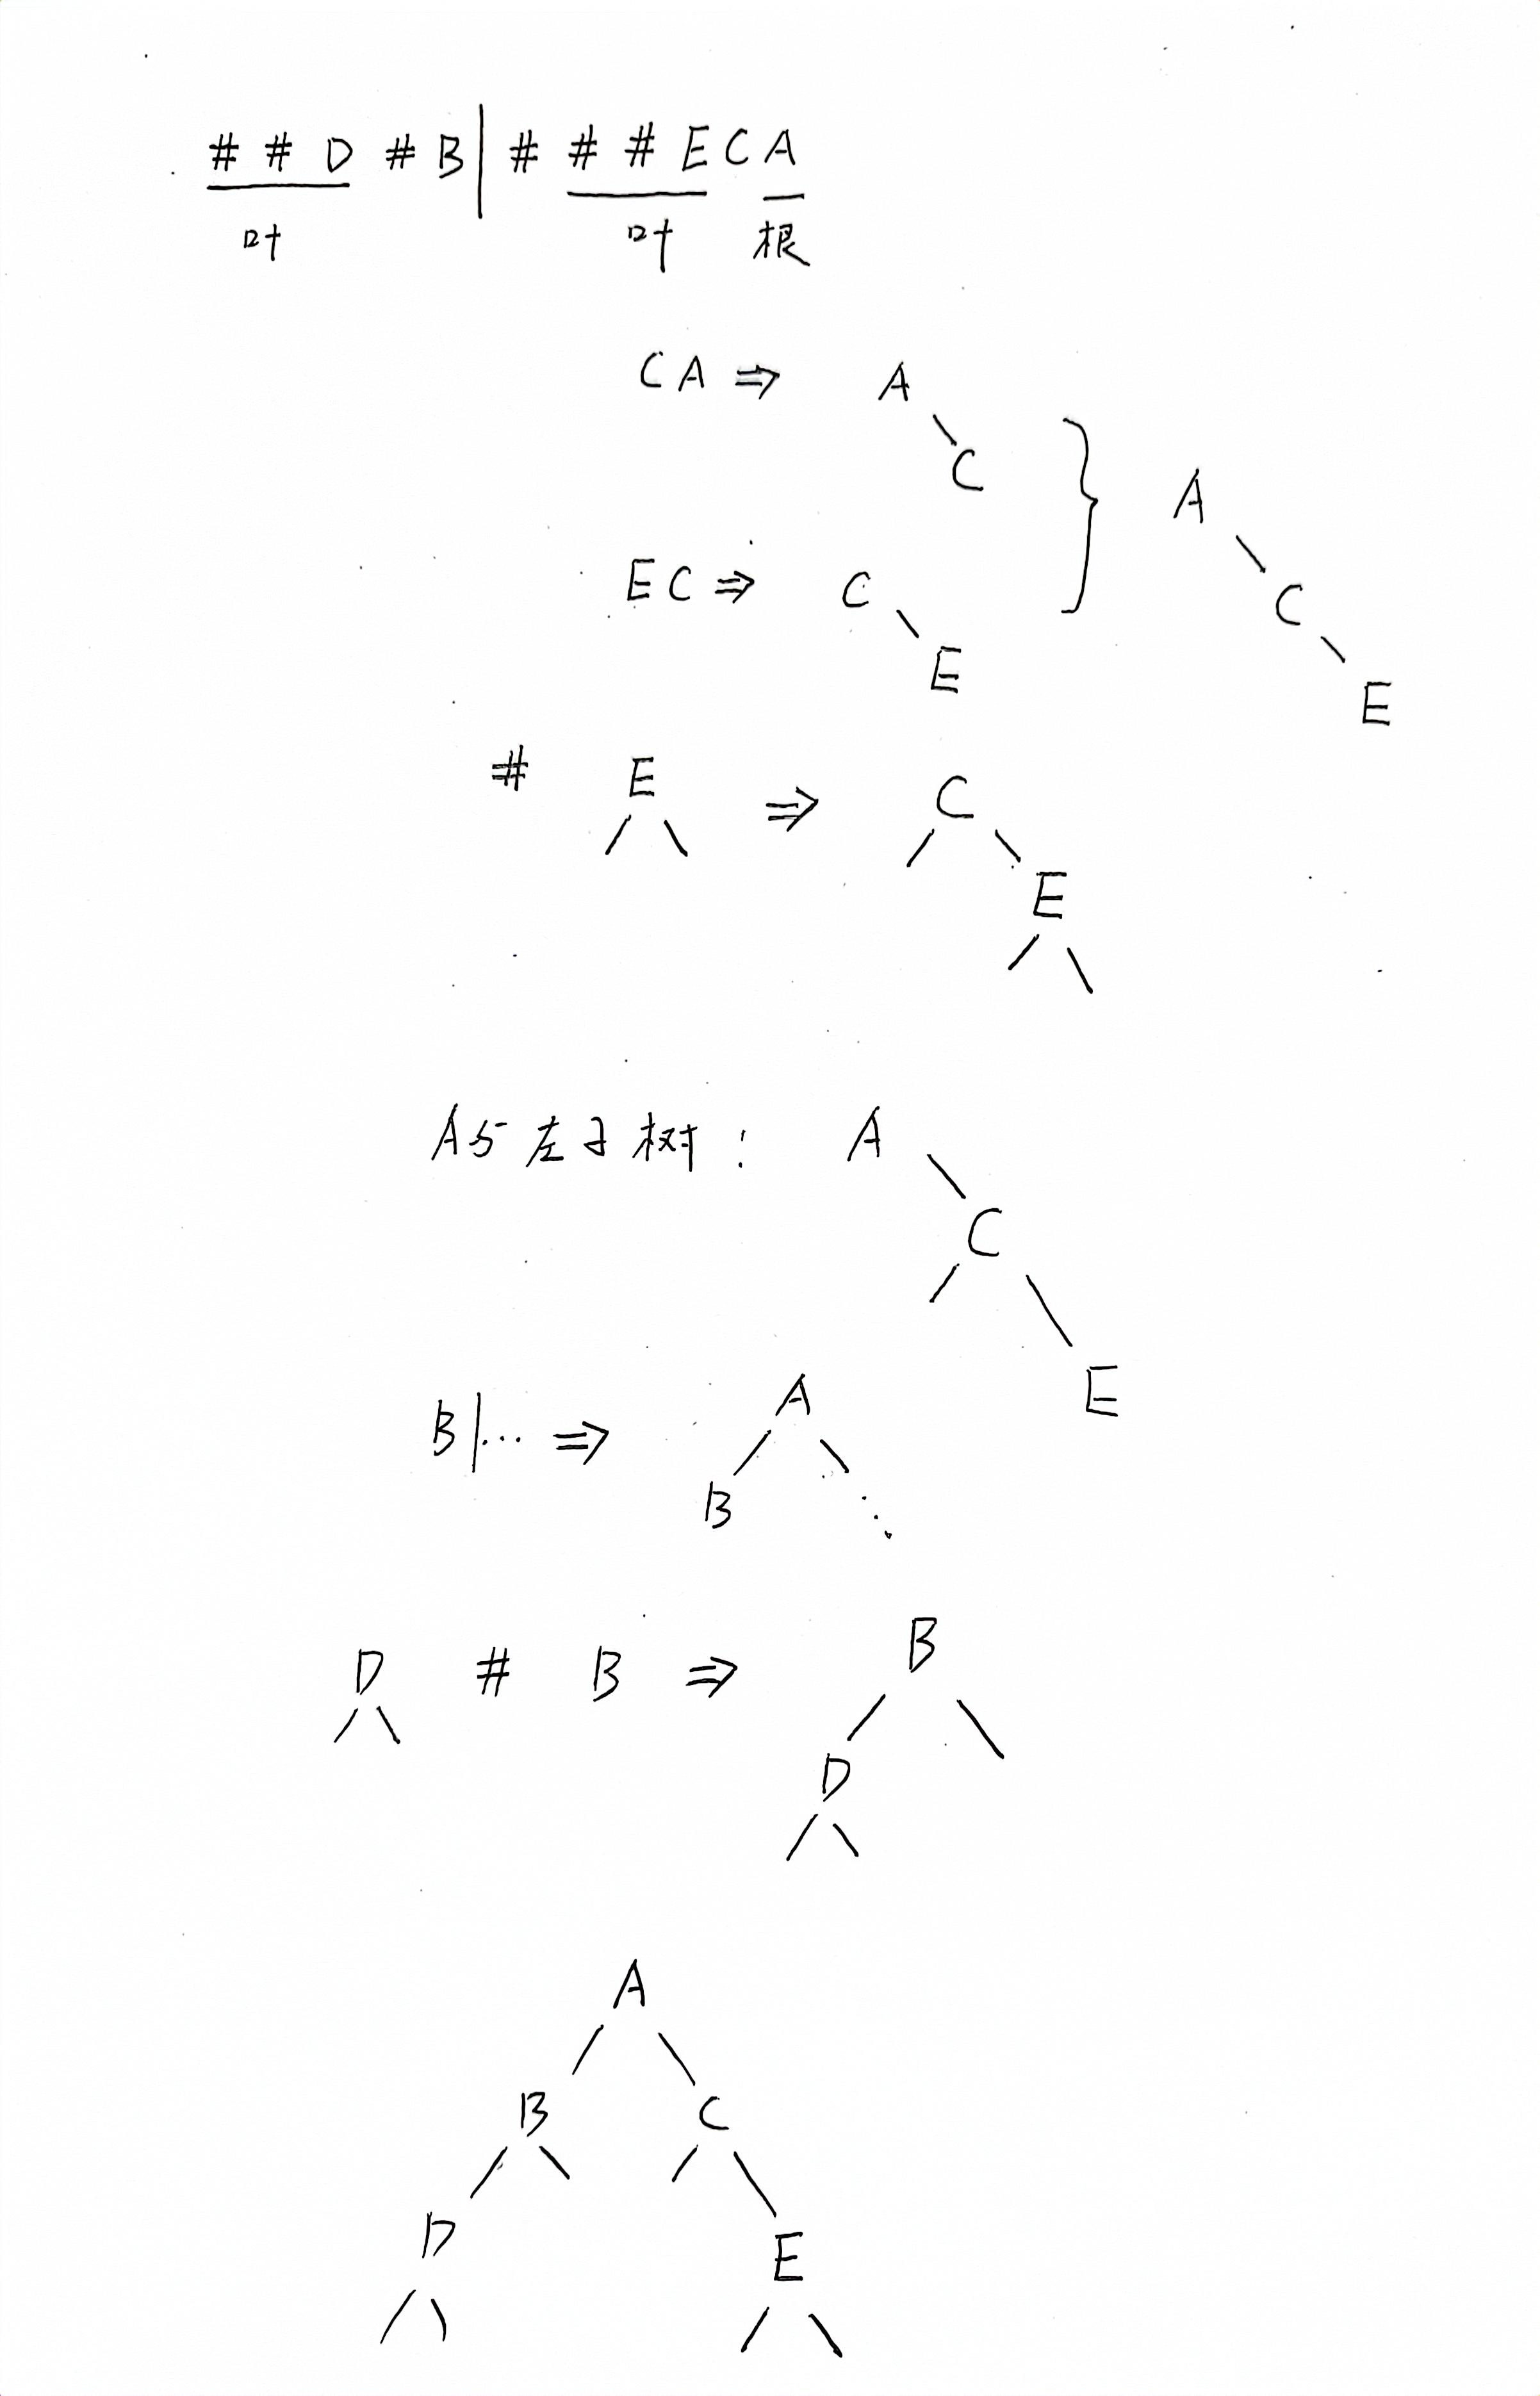 # # D # B | # # # E C A
叶 叶 根
C A ⇒ A
C
A
E C ⇒ C
C
E
E
# E ⇒ C
E
A与左子树: A
C
E
B|... ⇒ A
B
D # B ⇒ B
D
A
B C
D E